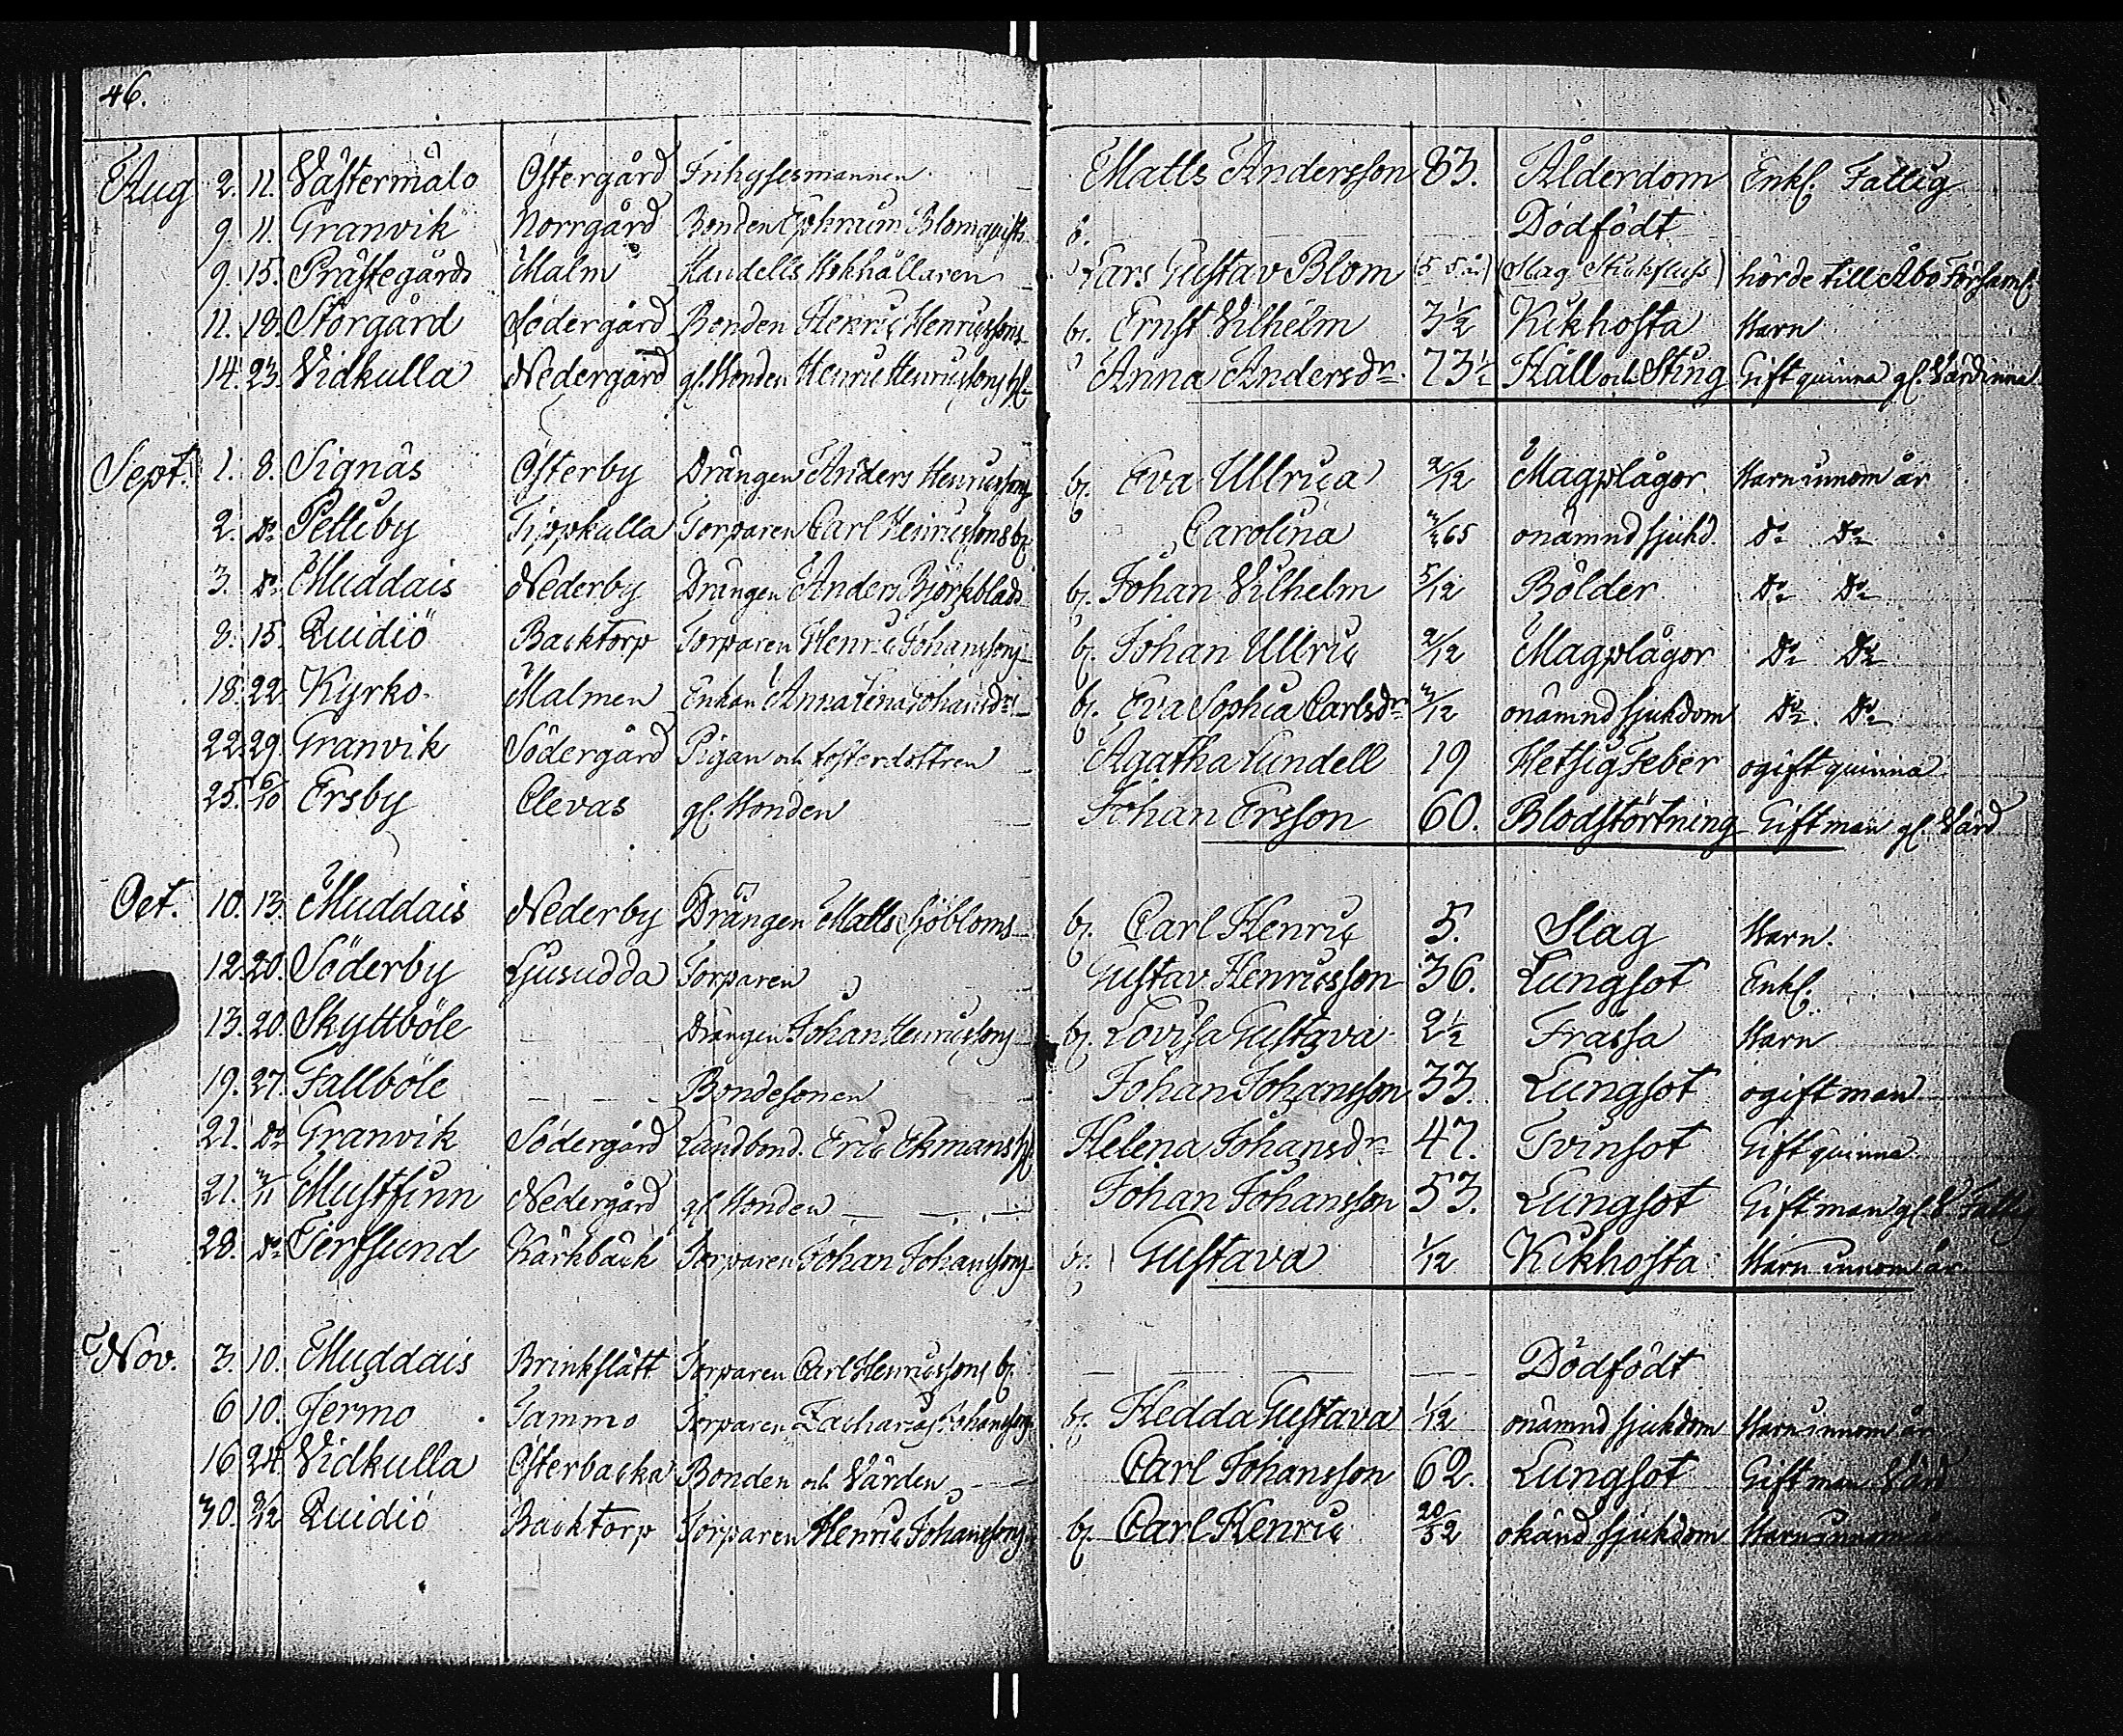 46.
Aug 2. 11. Västermälo Östergård Inhysesmannen Matts Andersson 83. Ålderdom Enkl. Fattig
9. 11. Granvik Norrgård Bonden Ephraim Blomqvists b. Dödfödt
9. 15. Prästegårds Malm Handells Bokhållaren Lars Gustav Blom (55 år) (Slag Stickfluss) hörde till Åbo Församl.
11. 18. Storgård Södergård Bonden Henric Henricssons b. Ernst Vilhelm 3½ Kikhosta Barn
14. 23. Vidkulla Nedergård gl. Bonden Henric Henricssons h. Anna Andersdr. 73½ Håll och Sting Gift quinna gl. Värdinna
Sept. 1. 8. Signäs Österby Drängen Anders Henricssons b. Eva Ullrica 2/12 Magplågor Barn innom år
2. Do Petteby Tippkulla Torparen Carl Henricssons b. Carolina onämnd sjukd. Do Do
3. Do Muddais Nederby Drängen Anders Björkblads b. Johan Vilhelm 5/12 Bölder Do Do
8. 15. Quidiö Backtorp Torparen Henric Johanssons b. Johan Ullric 2/12 Magplågor Do Do
18. 22. Kyrko. Malmen Enkan Anna Lena Johansdrs b. Eva Sophia Carlsdr 3/12 onämnd sjukdom Do Do
22. 29. Granvik Södergård Pigan och fosterdottren Agatha Lundell 19 Hetsig Feber ogift quinna
25. 6/10 Ersby Clevas gl. Bonden Johan Ersson 60. Blodstörtning Gift man gl. Värd
Oct. 10. 13. Muddais Nederby Drängen Matts Sjöbloms b. Carl Henric 5. Slag Barn.
12. 20. Söderby Ljusudda Torparen Gustav Henricsson 36. Lungsot Enkl.
13. 20. Skyttböle Drängen Johan Henricssons b. Lovisa Gustava 2½ Frassa Barn
19. 27. Fallböle Bondesonen Johan Johansson 33. Lungsot ogift man
21. Do Granvik Södergård Landbond. Eric Ekmans h. Helena Johansdr 47. Tvinsot Gift quinna
21. 3/11 Mustfinn Nedergård gl. Bonden Johan Johansson 53. Lungsot Gift man gl. V. Fattig
28. Do Terfsund Kärkbäck Torparen Johan Johanssons b. Gustava 1/12 Kikhosta Barn innom år
Nov. 3. 10. Muddais Brinkslätt Torparen Carl Henricssons b. Dödfödt
6 10. Jermo Tammo Torparen Zacharias Johanssons b. Hedda Gustava 1/12 onämnd sjukdom Barn innom år
16 24. Vidkulla Österbacka Bonden och Värden Carl Johansson 62. Lungsot Gift man Värd
30. 8/12 Quidiö Backtorp Torparen Henric Johanssons b. Carl Henric 20/52 okänd sjukdom Barn innom år